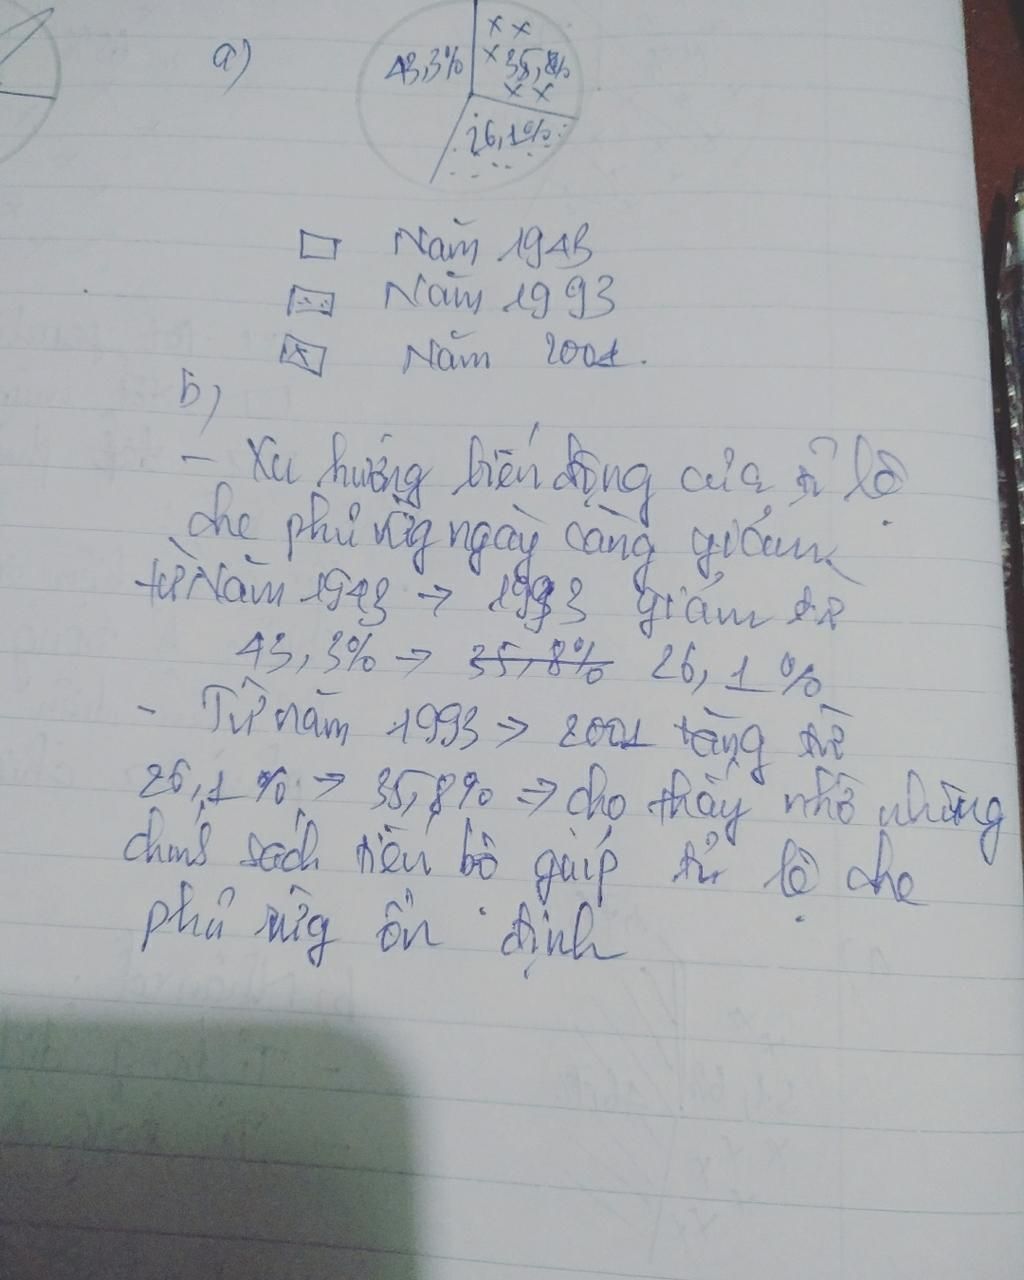 a)
43,3%
35,8%
26,1%
Năm 1943
Năm 1993
Năm 2001.
b)
- Xu hướng biến động của tỉ lệ
che phủ rừng ngày càng giảm
từ Năm 1943 → 1993 giảm từ
43,3% → 35,8% 26,1%
- Từ năm 1993 → 2001 tăng từ
26,1% → 35,8% => cho thấy nhờ những
chính sách tiến bộ giúp tỉ lệ che
phủ rừng ổn định